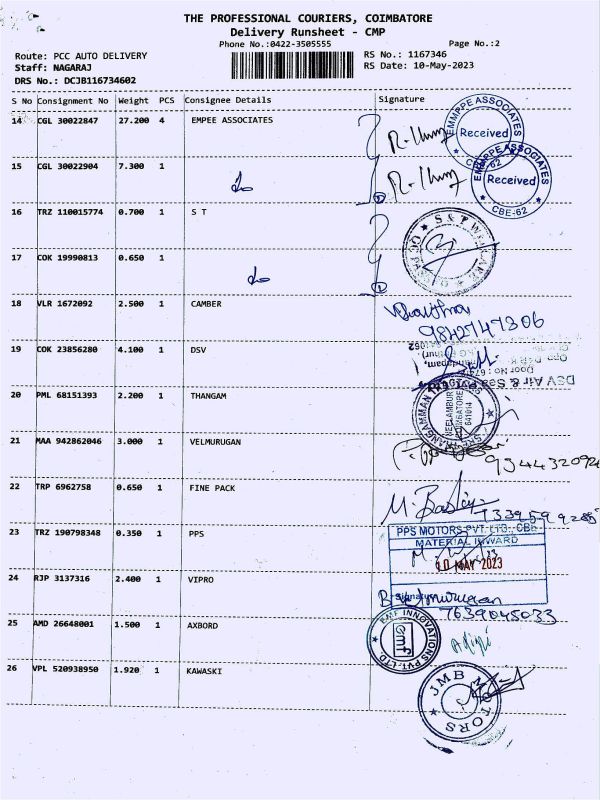 THE PROFESSIONAL COURIERS, COIMBATORE
Delivery Runsheet - CMP
Phone No.:0422-3505555 Page No.:2
Route: PCC AUTO DELIVERY RS No.: 1167346
Staff: NAGARAJ RS Date: 10-May-2023
DRS No.: DCJB116734602
S No Consignment No Weight PCS Consignee Details Signature
14 CGL 30022847 27.200 4 EMPEE ASSOCIATES
EMMPPE ASSOCIATES
Received
CBE-62
15 CGL 30022904 7.300 1
EMMPPE ASSOCIATES
Received
CBE-62
16 TRZ 110015774 0.700 1 S T
17 COK 19990813 0.650 1
18 VLR 1672092 2.500 1 CAMBER
9842747306
19 COK 23856280 4.100 1 DSV
DSV Air & Sea
20 PML 68151393 2.200 1 THANGAM
NEELAMBUR
COIMBATORE
641014
21 MAA 942862046 3.000 1 VELMURUGAN
22 TRP 6962758 0.650 1 FINE PACK
23 TRZ 190798348 0.350 1 PPS
PPS MOTORS PVT. LTD., CBE
MATERIAL INWARD
10 MAY 2023
24 RJP 3137316 2.400 1 VIPRO
7639045033
25 AMD 26648001 1.500 1 AXBORD
INNOVATIONS PVT. LTD.
26 VPL 520938950 1.920 1 KAWASKI
JMB MOTORS